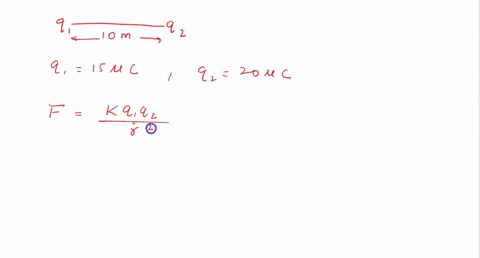 q₁ q₂
10 m
q₁ = 15 μC , q₂ = 20 μC
F = K q₁ q₂ / r²